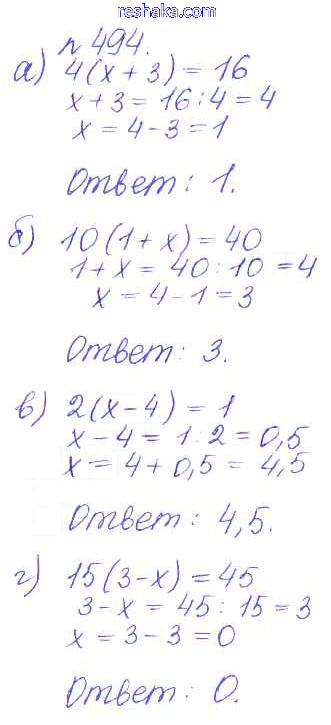 www.
reshaka.com
№ 494.
а) 4(x + 3) = 16
x + 3 = 16 : 4 = 4
x = 4 - 3 = 1
Ответ: 1.
б) 10(1 + x) = 40
1 + x = 40 : 10 = 4
x = 4 - 1 = 3
Ответ: 3.
в) 2(x - 4) = 1
x - 4 = 1 : 2 = 0,5
x = 4 + 0,5 = 4,5
Ответ: 4,5.
г) 15(3 - x) = 45
3 - x = 45 : 15 = 3
x = 3 - 3 = 0
Ответ: 0.